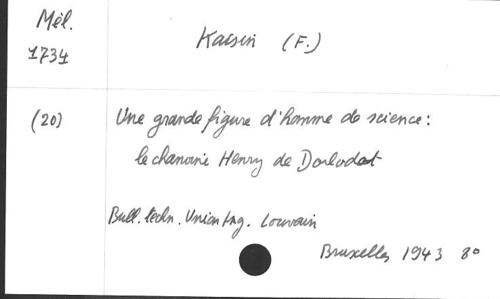 Mél.
1734
Kaisin (F.)
(20)
Une grande figure d'homme de science:
le chanoine Henry de Dorlodot
Bull. techn. Union Ing. Louvain
Bruxelles 1943 8°